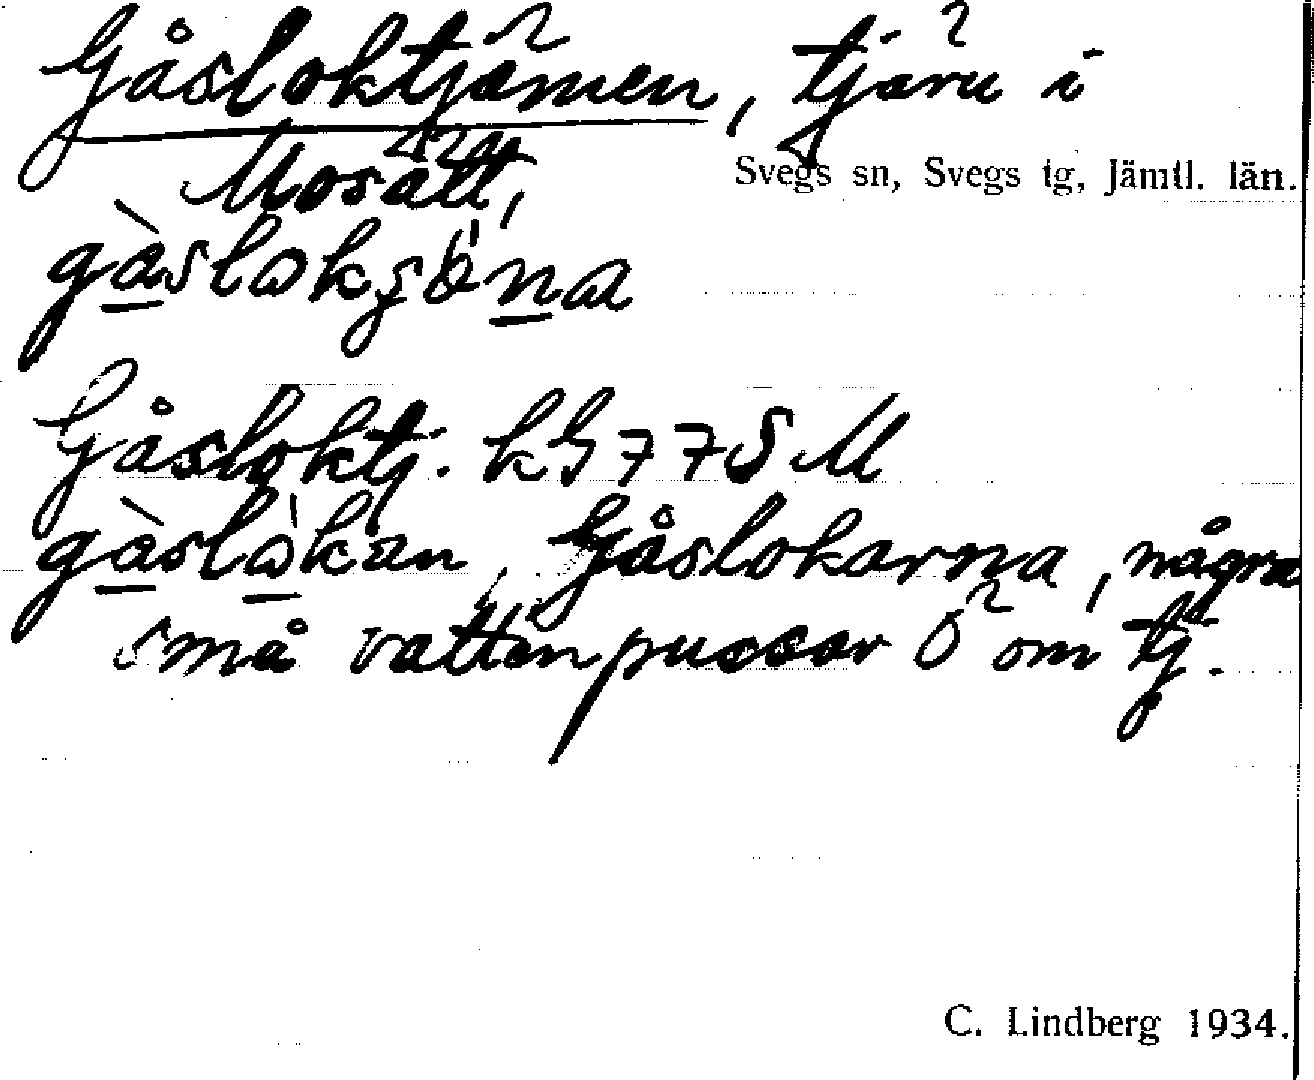 Gåsloktjärnen, tjärn i
Mosätt,
Svegs sn, Svegs tg, Jämtl. län.
Gåsloktj. kG 77 S M
Gåslokarna, några
små vattenpussar Ö om tj.
C. Lindberg 1934.